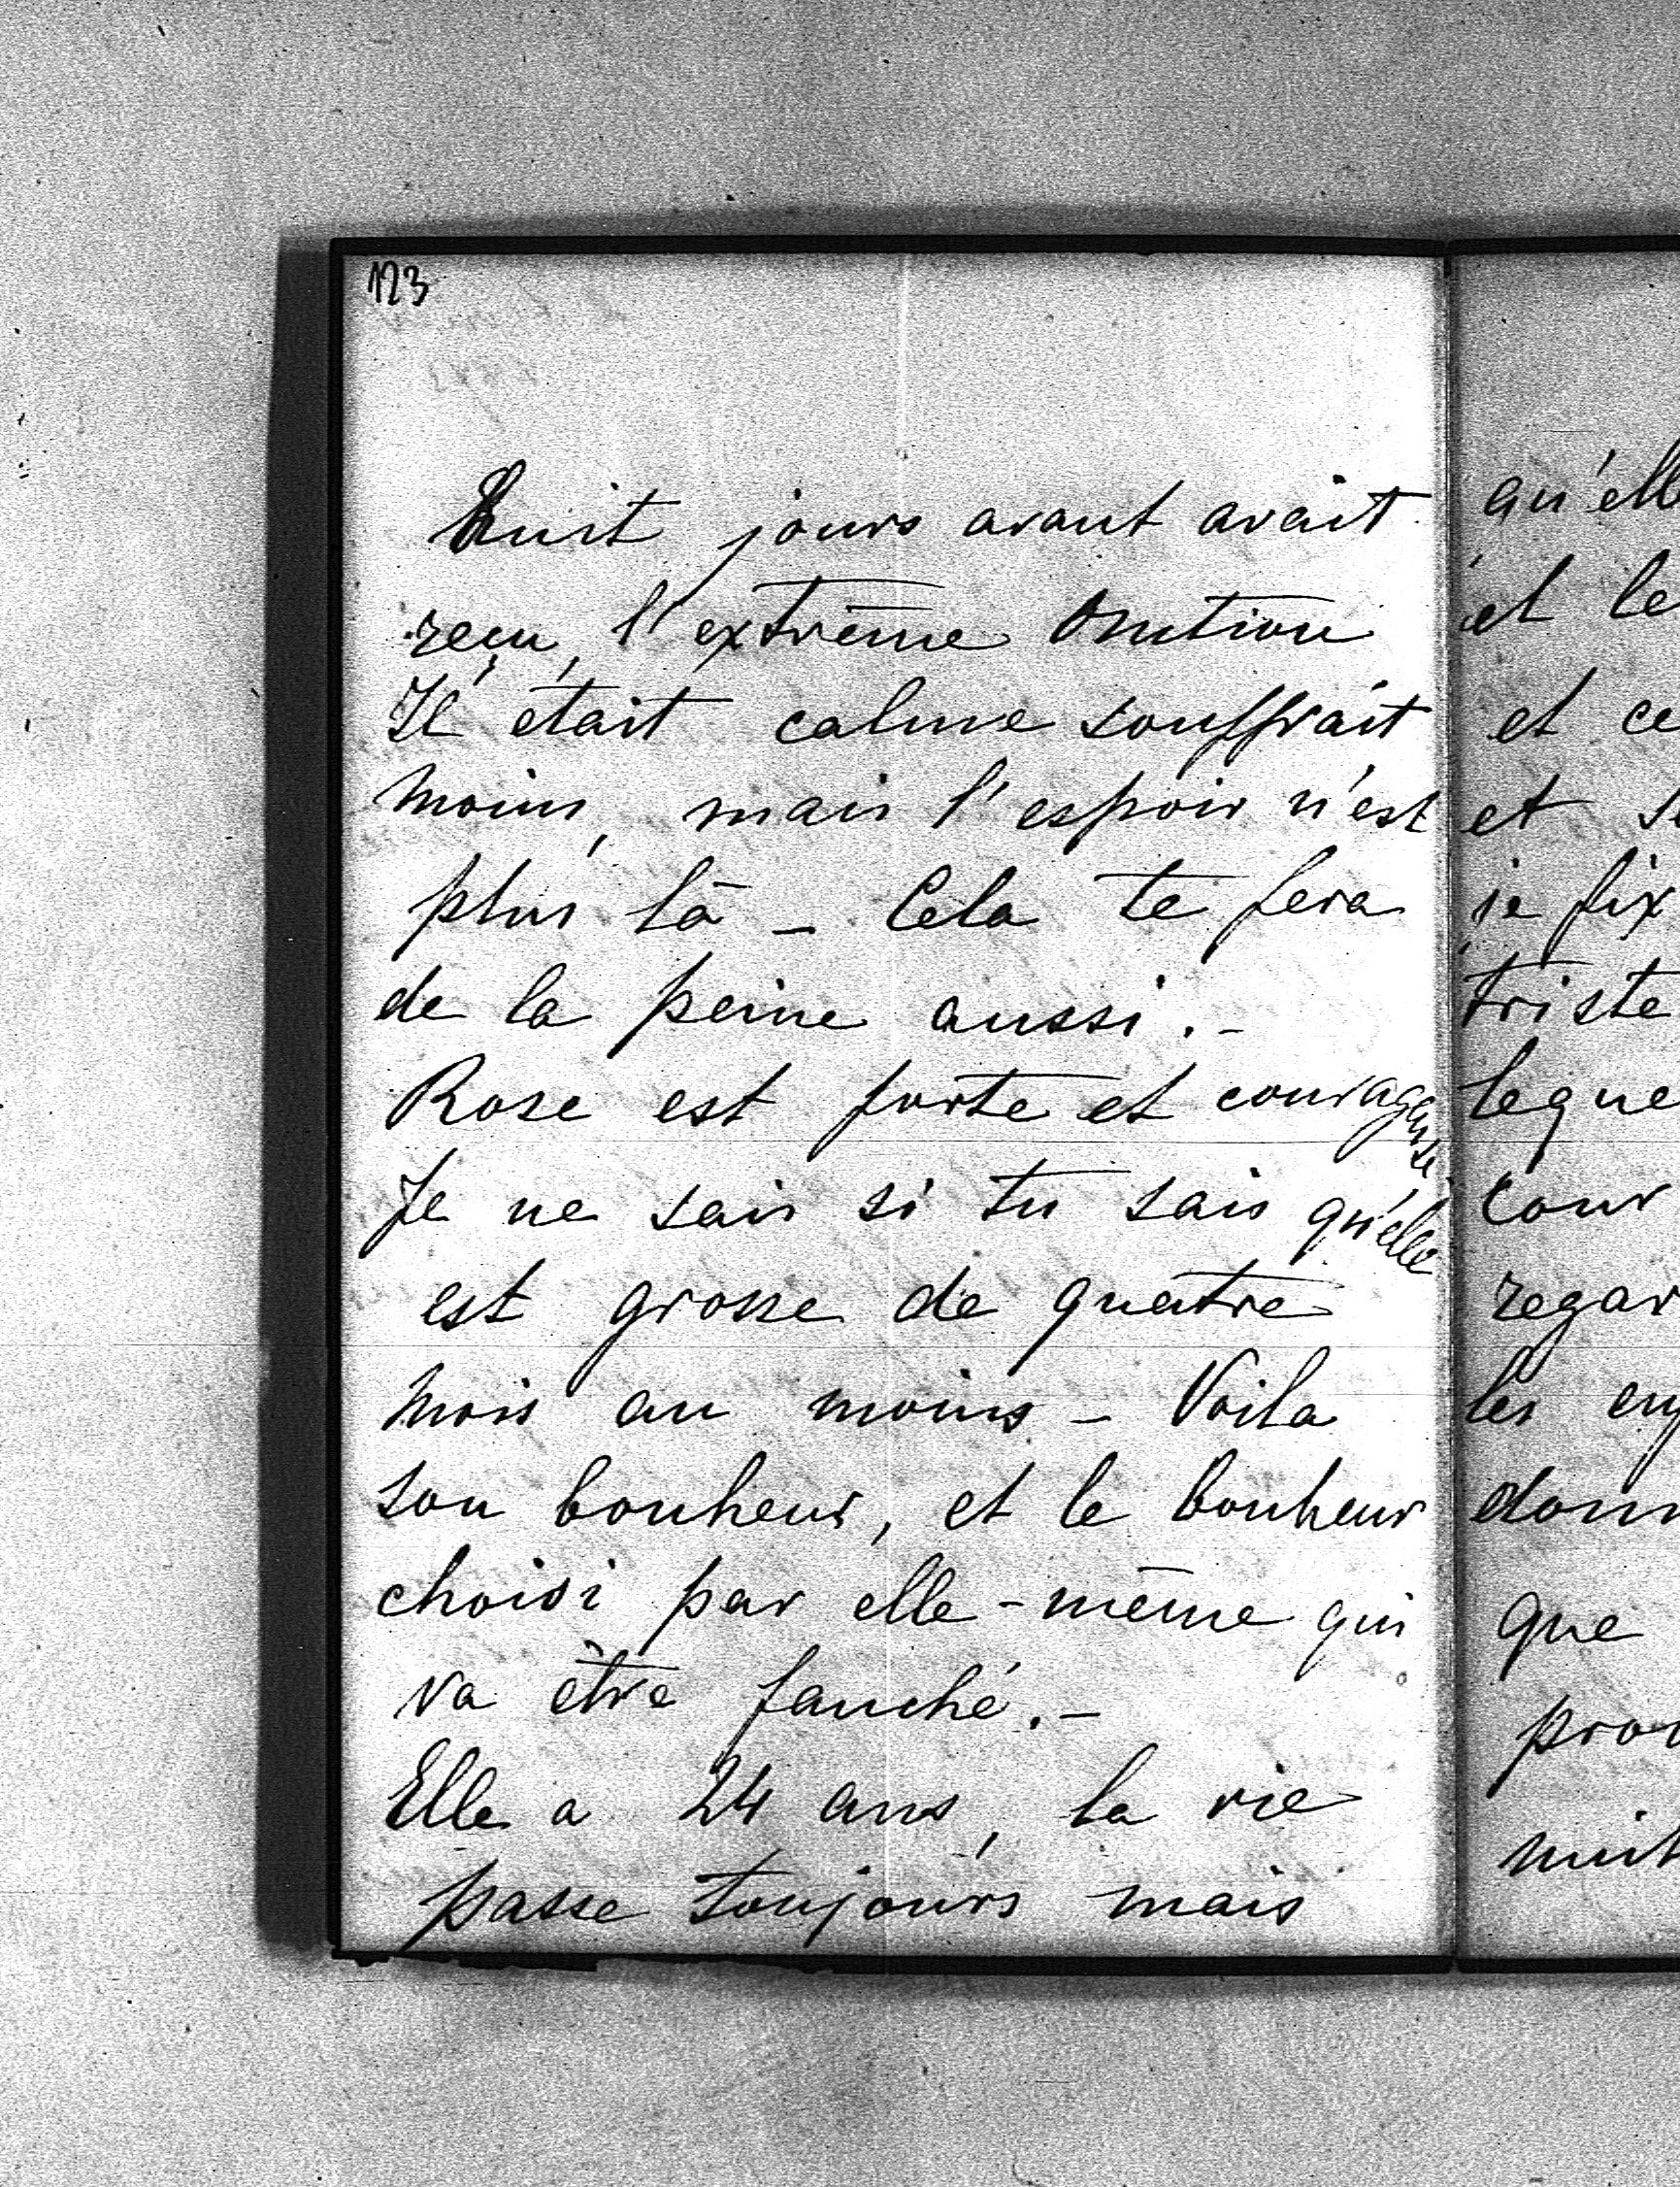 123
huit jours avant avait
reçu, l'extrême Onction
Il était calme souffrait
moins, mais l'espoir n'est
plus là - Cela te fera
de la peine aussi. -
Rose est forte et courageuse
Je ne sais si tu sais qu'elle
est grosse de quatre
mois au moins - Voila
son bonheur, et le bonheur
choisi par elle-même qui
va être fauché. -
Elle a 24 ans, la vie
passe toujours mais
qu'ell
et le
et ce
et s
je fix
triste
leque
cour
regar
les
donn
que
pro
nuit